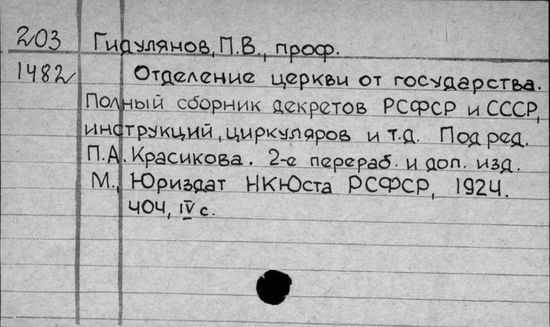 203 Гидулянов, П.В., проф.
1482 Отделение церкви от государства.
Полный сборник декретов РСФСР и СССР,
инструкций, циркуляров и т.д. Под ред.
П.А. Красикова. 2-е перераб. и доп. изд.
М., Юриздат НКЮста РСФСР, 1924.
404, IV с.